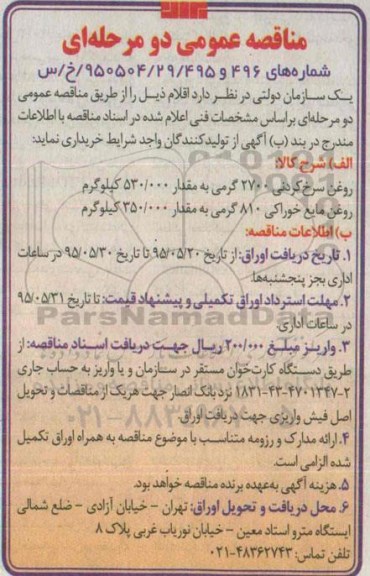 مناقصه عمومی دو مرحله‌ای
شماره‌های ۴۹۶ و ۹۵۰۵۰۴/۲۹/۴۹۵/خ/س
یک سازمان دولتی در نظر دارد اقلام ذیل را از طریق مناقصه عمومی
دو مرحله‌ای براساس مشخصات فنی اعلام شده در اسناد مناقصه با اطلاعات
مندرج در بند (ب) آگهی از تولیدکنندگان واجد شرایط خریداری نماید:
الف) شرح کالا:
روغن سرخ‌کردنی ۲۷۰۰ گرمی به مقدار ۵۳۰/۰۰۰ کیلوگرم
روغن مایع خوراکی ۸۱۰ گرمی به مقدار ۳۵۰/۰۰۰ کیلوگرم
ب) اطلاعات مناقصه:
۱. تاریخ دریافت اوراق: از تاریخ ۹۵/۰۵/۲۰ تا تاریخ ۹۵/۰۵/۳۰ در ساعات
اداری بجز پنجشنبه‌ها.
۲. مهلت استرداد اوراق تکمیلی و پیشنهاد قیمت: تا تاریخ ۹۵/۰۵/۳۱
در ساعات اداری.
ParsNamadData
۳. واریز مبلغ ۲۰۰/۰۰۰ ریال جهت دریافت اسناد مناقصه: از
طریق دستگاه کارت‌خوان مستقر در سازمان و یا واریز به حساب جاری
۲-۴۷۰۱۳۴۷-۴۳-۱۸۳۱ نزد بانک انصار جهت هریک از مناقصات و تحویل
اصل فیش واریزی جهت دریافت اوراق.
۴. ارائه مدارک و رزومه متناسب با موضوع مناقصه به همراه اوراق تکمیل
شده الزامی است.
۵. هزینه آگهی به‌عهده برنده مناقصه خواهد بود.
۶. محل دریافت و تحویل اوراق: تهران - خیابان آزادی - ضلع شمالی
ایستگاه مترو استاد معین - خیابان نوریاب غربی پلاک ۸
تلفن تماس: ۴۸۳۶۲۷۴۳-۰۲۱